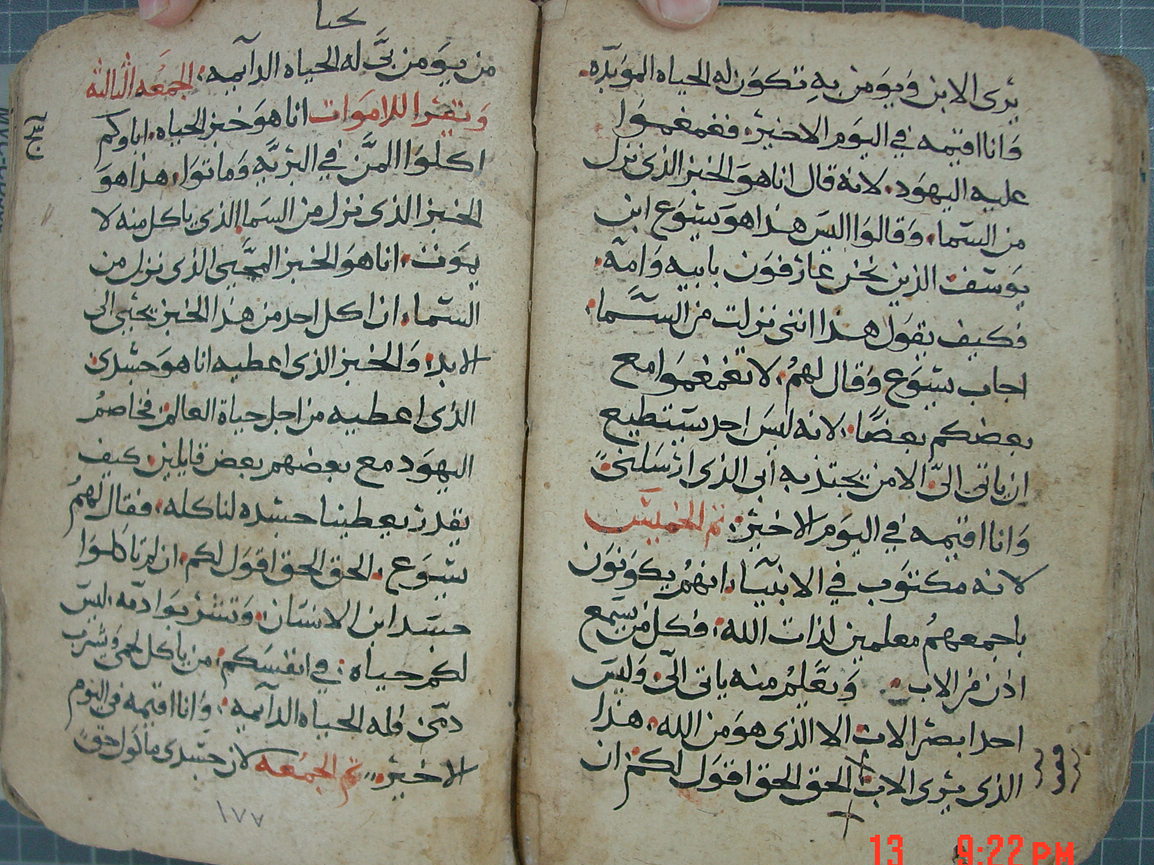 يرى الابن ويومن به تكون له الحياه الموبده.
وانا اقيمه في اليوم الاخير. فغمغموا
عليه اليهود. لانه قال انا هو الخبز الذي نزل
من السما. وقالوا اليس هذا هو يسوع ابن
يوسف الذين نحن عارفون بابيه وامه.
فكيف يقول هذا انني نزلت من السما.
اجاب يسوع وقال لهم. لا تغمغموا مع
بعضكم بعضًا. لانه ليس احد يستطيع
ان ياتي الىّ. الا من يجتذبه ابي الذي ارسلني.
وانا اقيمه في اليوم الاخير. تم الخميس
لانه مكتوب في الانبيا. انهم يكونون
باجمعهم معلمين لذات الله. فكل من يسمع
اذن من الاب. ويتعلم منه ياتي الىّ. وليس
احد ابصر الاب الا الذي هو من الله. هذا
الذي يرى الاب. الحق الحق اقول لكم. ان
من يومن بىّ له الحياه الدايمه. الجمعه الثالثة
وتقرا للاموات انا هو خبز الحياه. اباوكم
اكلوا المنّ في البريّه وماتوا. هذا هو
الخبز الذي نزل من السما الذي ياكل منه لا
يموت. انا هو الخبز المحيي الذي نزل من
السما. ان اكل احد من هذا الخبز يحيى الى
الابد. والخبز الذي اعطيه انا هو جسدي
الذي اعطيه من اجل حياة العالم. فخاصم
اليهود مع بعضهم بعض قايلين. كيف
يقدر يعطينا جسده لناكله. فقال لهم
يسوع. الحق الحق اقول لكم. ان لم تاكلوا
جسد ابن الانسان. وتشربوا دمه. ليس
لكم حياه في انفسكم. من ياكل لحمي ويشرب
دمي. فله الحياه الدايمه. وانا اقيمه في اليوم
الاخير. تم الجمعه لان جسدي ماكول حق
١٧٧
13 9:22 PM